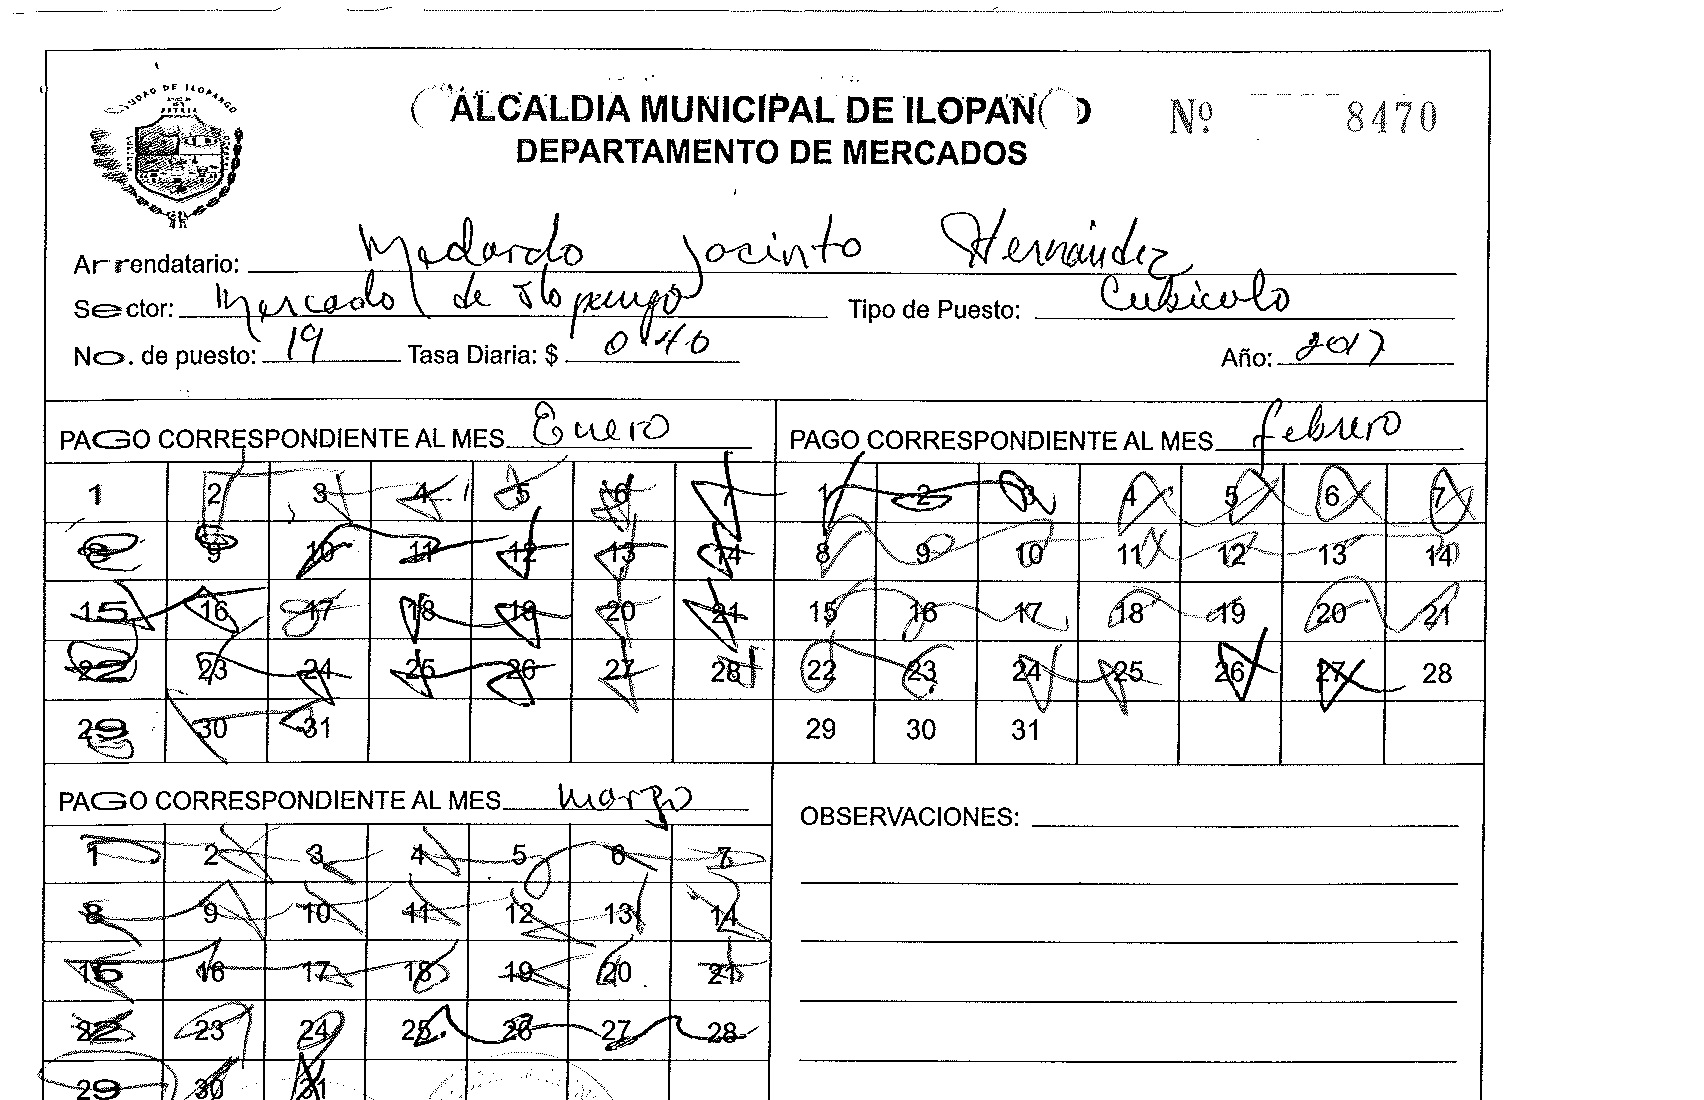 CIUDAD DE ILOPANGO
ALCALDIA MUNICIPAL DE ILOPAN
Nº 8470
DEPARTAMENTO DE MERCADOS
Arrendatario: Medardo Jacinto Hernández
Sector: Mercado de Ilopango Tipo de Puesto: Cubiculo
No. de puesto: 19 Tasa Diaria: $ 0.40 Año: 2017
PAGO CORRESPONDIENTE AL MES Enero
1 2 3 4 5 6 7
8 9 10 11 12 13 14
15 16 17 18 19 20 21
22 23 24 25 26 27 28
29 30 31
PAGO CORRESPONDIENTE AL MES febrero
1 2 3 4 5 6 7
8 9 10 11 12 13 14
15 16 17 18 19 20 21
22 23 24 25 26 27 28
29 30 31
PAGO CORRESPONDIENTE AL MES marzo
1 2 3 4 5 6 7
8 9 10 11 12 13 14
15 16 17 18 19 20 21
22 23 24 25 26 27 28
29 30 31
OBSERVACIONES: